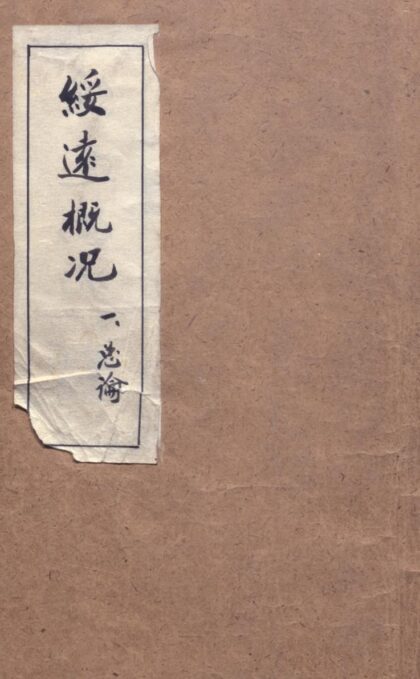 綏遠概况
一、总論